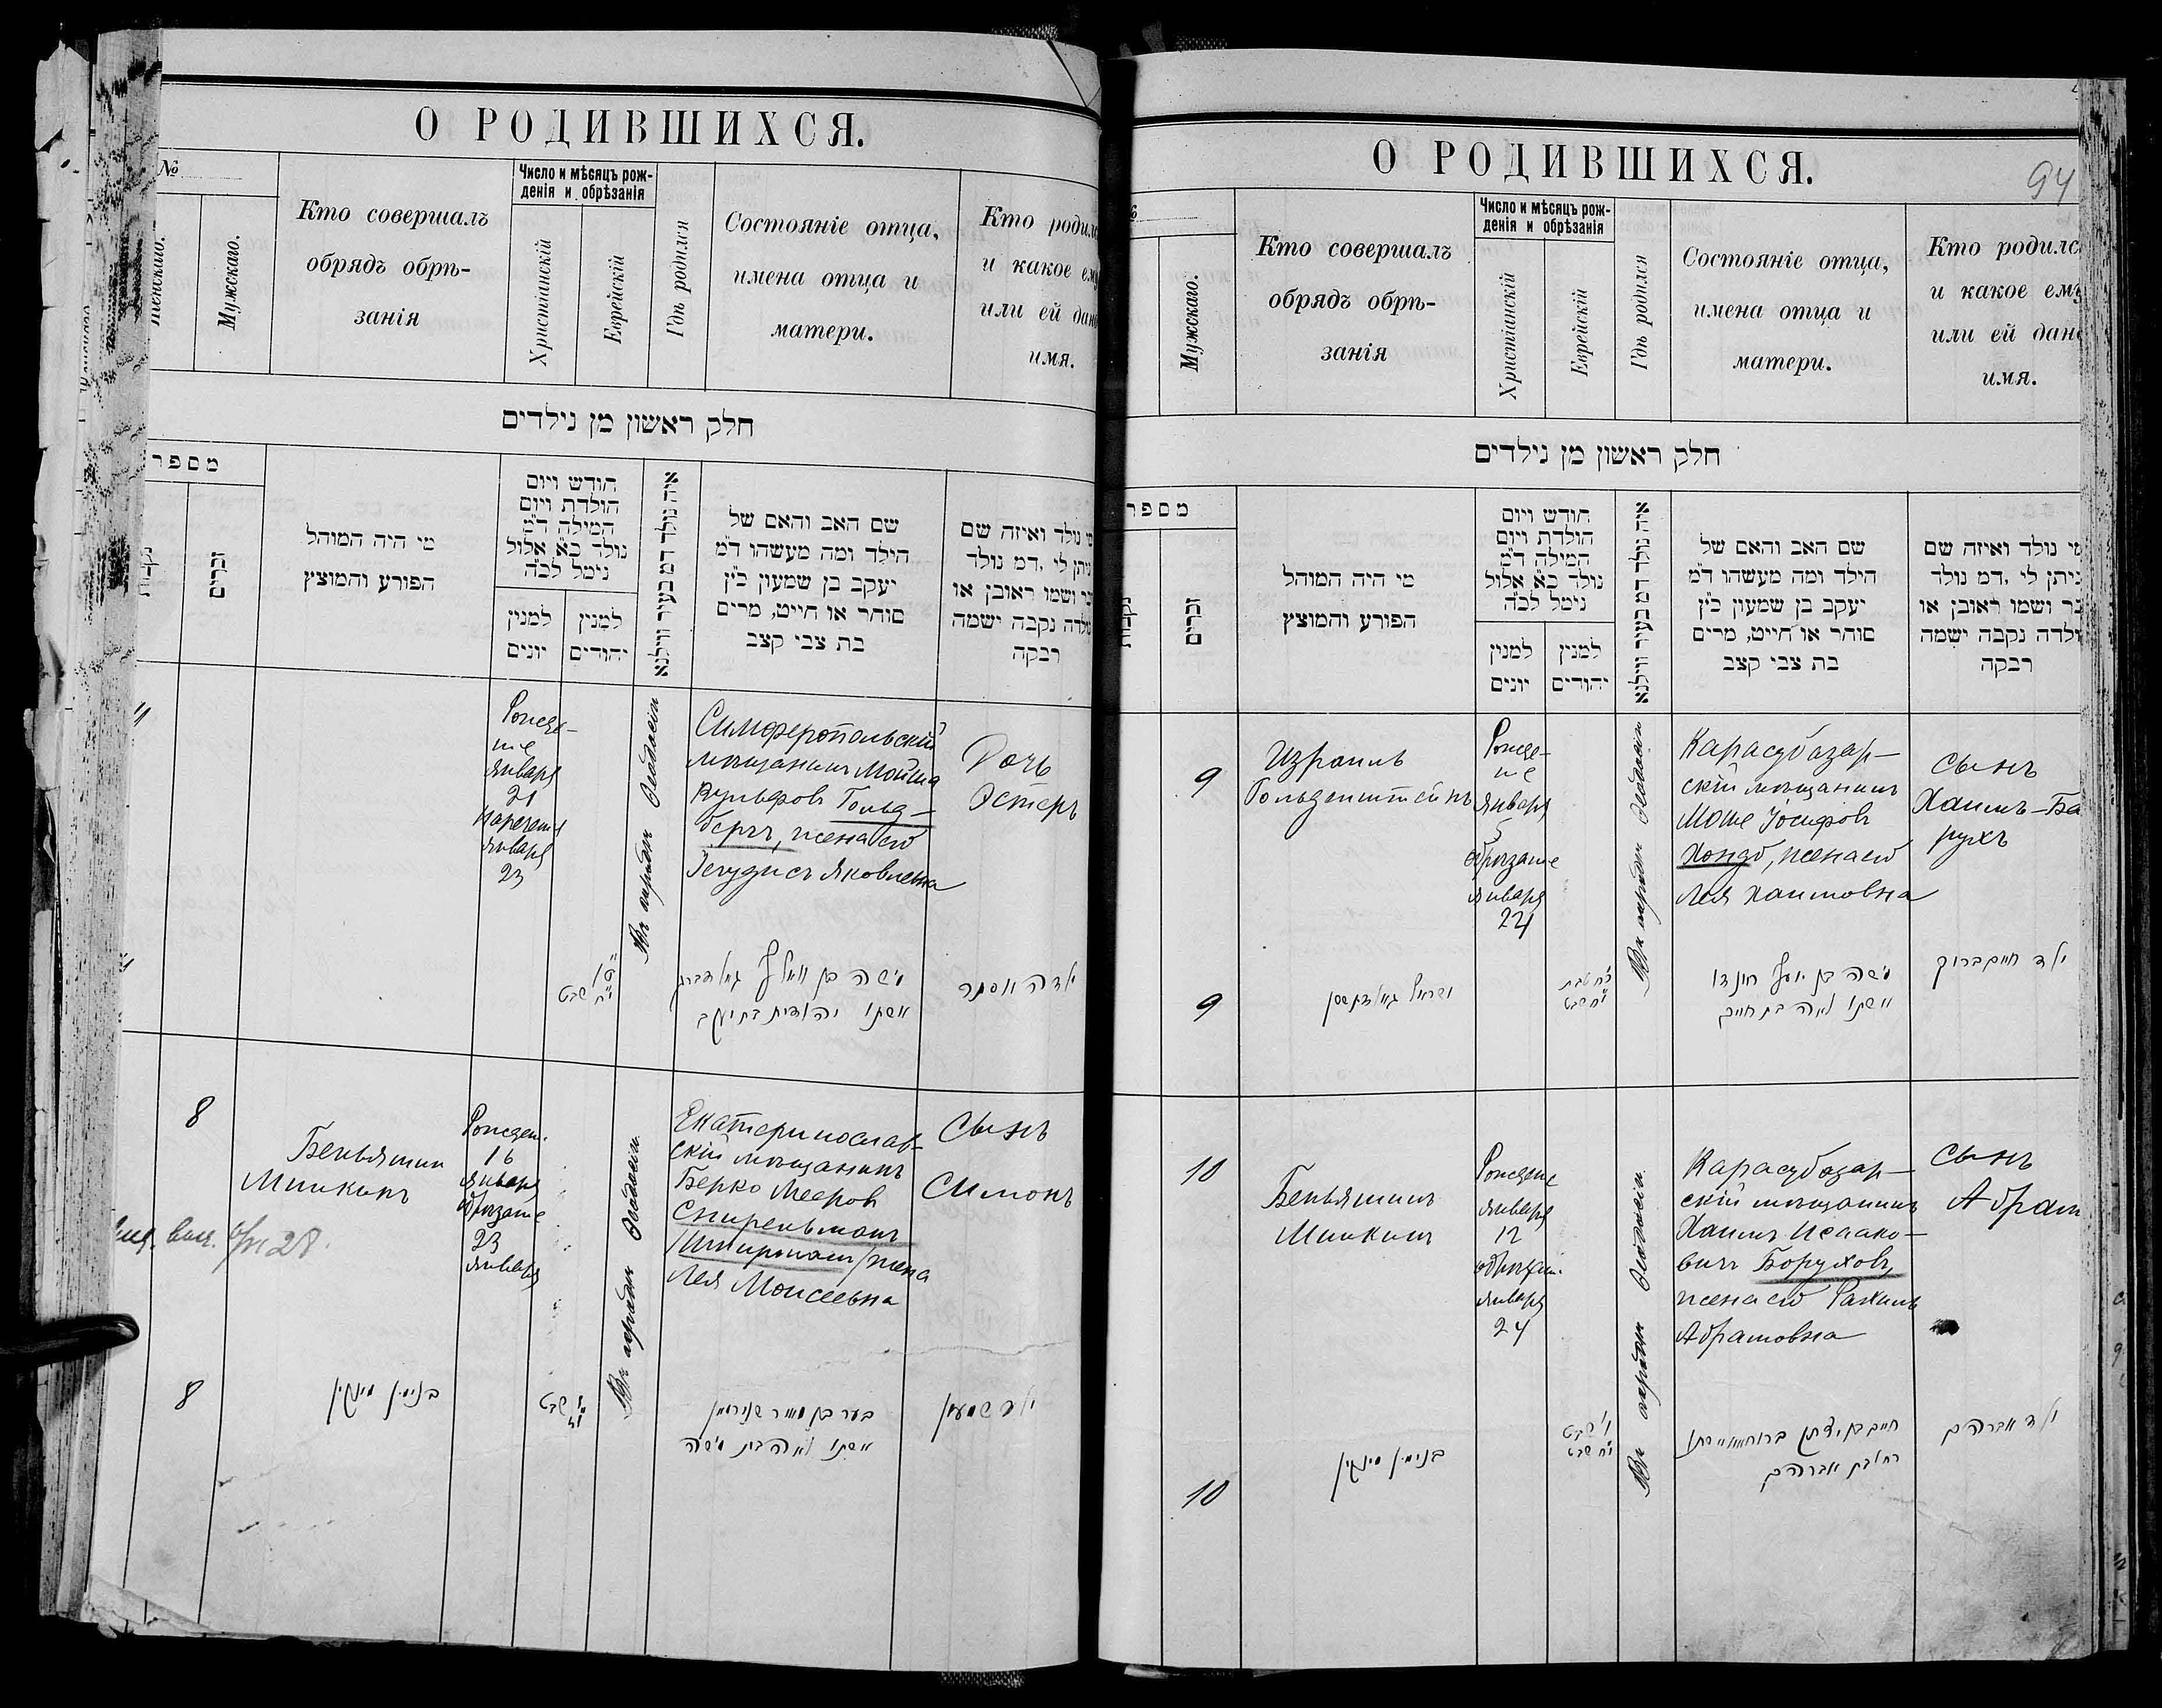 О РОДИВШИХСЯ.
№
Женскаго.
Мужскаго.
Кто совершалъ
обрядъ обрѣ-
занія
Число и мѣсяцъ рож-
денія и обрѣзанія
Христіанскій
Еврейскій
Гдѣ родился
Состояніе отца,
имена отца и
матери.
Кто родился
и какое ему
или ей дано
имя.
חלק ראשון מן נילדים
מספר
זכרים
מי היה המוהל
הפורע והמוצץ
חודש ויום
הולדת ויום
המילה ד״מ
נולד כ״א אלול
נימל לכ״ה
למנין
יונים
למנין
יהודים
איה נולד דמ בעיר ווילנא
שם האב והאם של
הילד ומה מעשהו ד״מ
יעקב בן שמעון כ״ץ
סוחר או חייט, מרים
בת צבי קצב
מי נולד ואיזה שם
ניתן לי, דמ נולד
ושמו ראובן או
נולדה נקבה ישמה
רבקה
Рожде-
ніе
Января
21
Наречені
Января
23
Въ городѣ Ѳеодосіи
Симферопольскій
мѣщанинъ Мойша
Вульфовъ Гольд-
бергъ, жена его
Іегудисъ Яковлевна
Дочь
Эстеръ
י״ח שבט
משה בן וואלף גאלדברג
אשתו יהודית בת יעקב
ילדה אסתר
8
Беньяминъ
Минкинъ
Рожден.
16
Января
обрѣзаніе
23
Января
Въ городѣ Ѳеодосіи
Екатеринослав-
скій мѣщанинъ
Берко Мееровъ
Спирельманъ
/Шпирманъ/ жена
Лея Моисеевна
Сынъ
Симонъ
28
8
בנימין מינקין
שבט
בער בן מאיר שפירמאן
אשתו לאה בת משה
ילד שמעון
О РОДИВШИХСЯ.
94
Мужскаго.
Кто совершалъ
обрядъ обрѣ-
занія
Число и мѣсяцъ рож-
денія и обрѣзанія
Христіанскій
Еврейскій
Гдѣ родился
Состояніе отца,
имена отца и
матери.
Кто родился
и какое ему
или ей дано
имя.
חלק ראשון מן נילדים
מספר
זכרים
מי היה המוהל
הפורע והמוצץ
חודש ויום
הולדת ויום
המילה ד״מ
נולד כ״א אלול
נימל לכ״ה
למנין
יונים
למנין
יהודים
איה נולד דמ בעיר ווילנא
שם האב והאם של
הילד ומה מעשהו ד״מ
יעקב בן שמעון כ״ץ
סוחר או חייט, מרים
בת צבי קצב
מי נולד ואיזה שם
ניתן לי, דמ נולד
ושמו ראובן או
נולדה נקבה ישמה
רבקה
9
Израиль
Гольденштейнъ
Рожде-
ніе
Января
5
обрѣзаніе
Января
24
Въ городѣ Ѳеодосіи
Карасубазар-
скій мѣщанинъ
Моше Іосифовъ
Хондо, жена его
Лея Хаимовна
Сынъ
Хаимъ-Ба
рухъ
9
ישראל גאלדנשטיין
כ״ח טבת
י״ח שבט
משה בן יוסף חונדו
אשתו לאה בת חיים
ילד חיים ברוך
10
Беньяминъ
Минкинъ
Рожденіе
Января
12
обрѣзан.
Января
24
Въ городѣ Ѳеодосіи
Карасубазар-
скій мѣщанинъ
Хаимъ Исаако-
вичъ Боруховъ,
жена его Рахиль
Абрамовна
Сынъ
Абрам
10
בנימין מינקין
ו׳ שבט
י״ח שבט
חיים בן יצחק ברוחוו אשתו
רחל בת אברהם
ילד אברהם